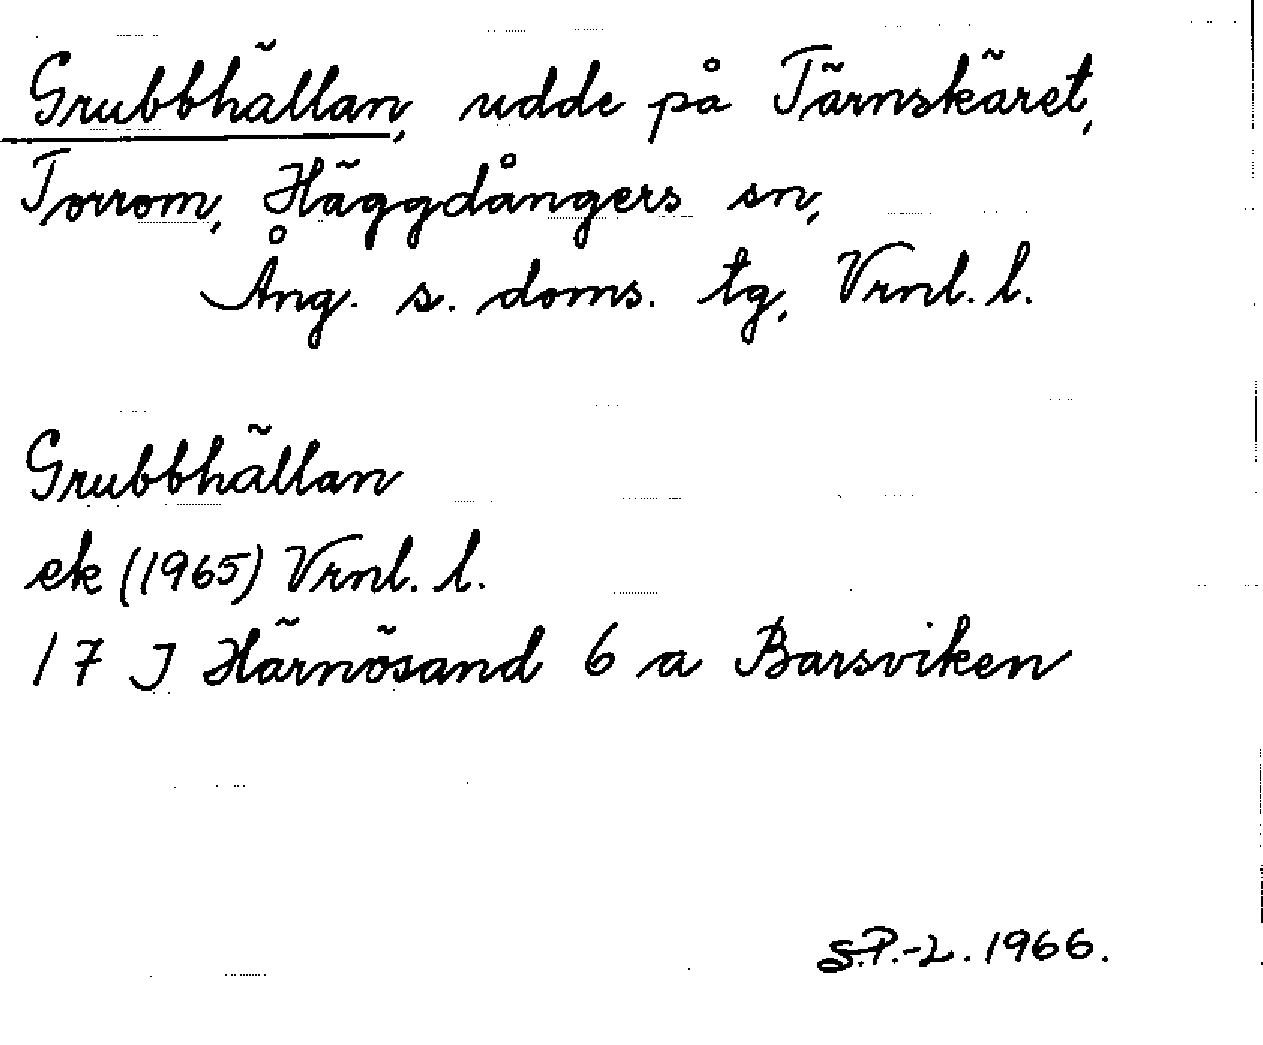 Grubbhällan, udde på Tärnskäret,
Torrom, Häggdångers sn,
Ång. s. doms. tg, Vrnl. l.
Grubbhällan
ek (1965) Vrnl. l.
17 J Härnösand 6 a Barsviken
S.P.-L. 1966.